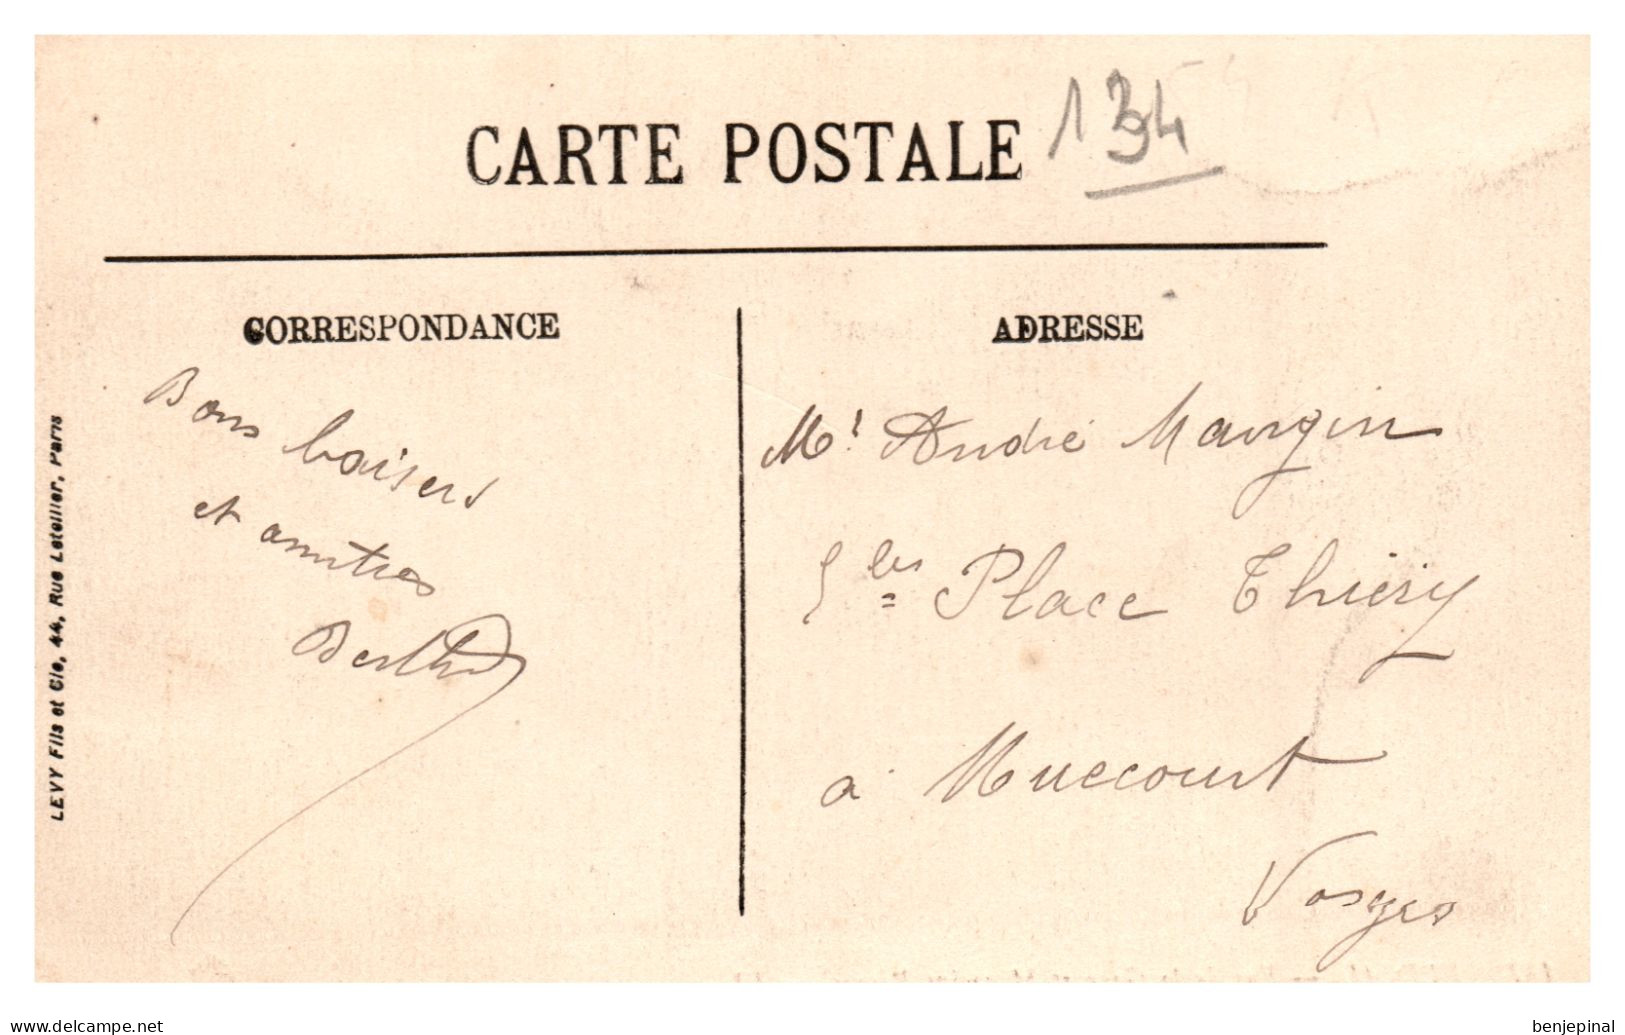 CARTE POSTALE 134
CORRESPONDANCE
Bons baisers
et amities
Berthe
ADRESSE
Mr André Mangin
5 bis Place Thiéry
à Mirecourt
Vosges
LEVY Fils et Cie, 44, Rue Letellier, Paris
www.delcampe.net
benjepinal